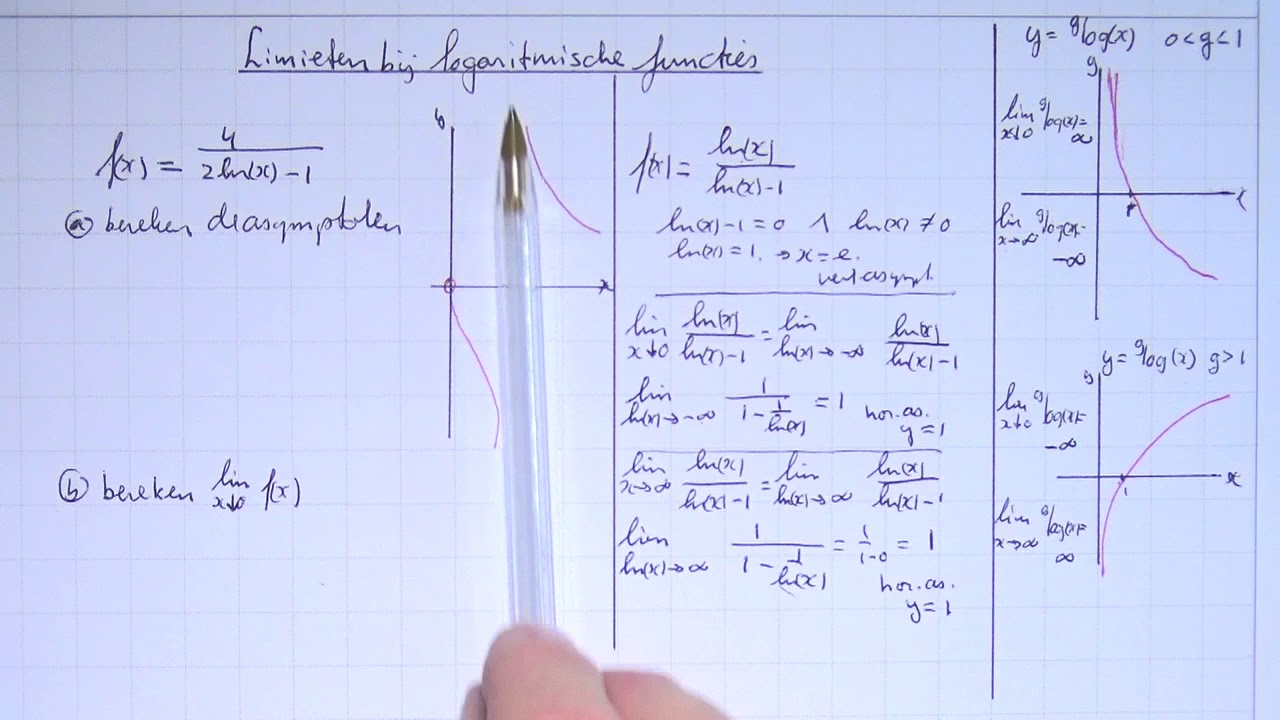 Limieten bij logaritmische functies
f(x) = 4 / (2ln(x) - 1)
ⓐ bereken de asymptoten
ⓑ bereken lim x↓0 f(x)
x
f(x) = ln(x) / (ln(x) - 1)
ln(x) - 1 = 0 ∧ ln(x) ≠ 0
ln(x) = 1 → x = e.
vert asympt.
lim x↓0 ln(x) / (ln(x) - 1) = lim ln(x)→-∞ ln(x) / (ln(x) - 1)
lim ln(x)→-∞ 1 / (1 - 1/ln(x)) = 1 hor. as.
y = 1
lim x→∞ ln(x) / (ln(x) - 1) = lim ln(x)→∞ ln(x) / (ln(x) - 1)
lim ln(x)→∞ 1 / (1 - 1/ln(x)) = 1/(1-0) = 1
hor. as.
y = 1
y = ᵍlog(x) 0 < g < 1
y
lim x↓0 ᵍlog(x) = ∞
x
1
lim x→∞ ᵍlog(x) = -∞
y = ᵍlog(x) g > 1
y
lim x↓0 ᵍlog(x) = -∞
x
1
lim x→∞ ᵍlog(x) = ∞